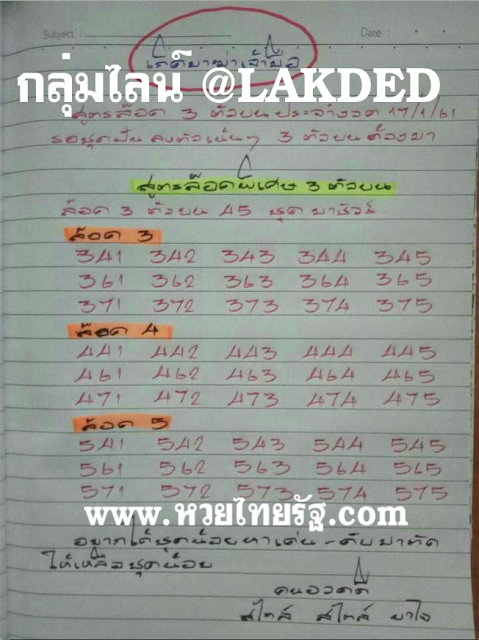 Subject : Date :
เด็ดมาฆ่าเจ้ามือ
กลุ่มไลน์ @LAKDED
สูตรล๊อค 3 ตัวบน ประจำงวด 17/1/61
รอชุดฟัน ลงตัวเน้นๆ 3 ตัวบน ต้องมา
สูตรล๊อคพิเศษ 3 ตัวบน
ล๊อค 3 ตัวบน 45 ชุด มาชัวร์
ล๊อค 3
341 342 343 344 345
361 362 363 364 365
371 372 373 374 375
ล๊อค 4
441 442 443 444 445
461 462 463 464 465
471 472 473 474 475
ล๊อค 5
541 542 543 544 545
561 562 563 564 565
571 572 573 574 575
www.หวยไทยรัฐ.com
อยากได้ชุดน้อยหาเด่น - ดับมาตัด
ให้เหลือชุดน้อย
คนอวดดี
สไตล์ สไตล์